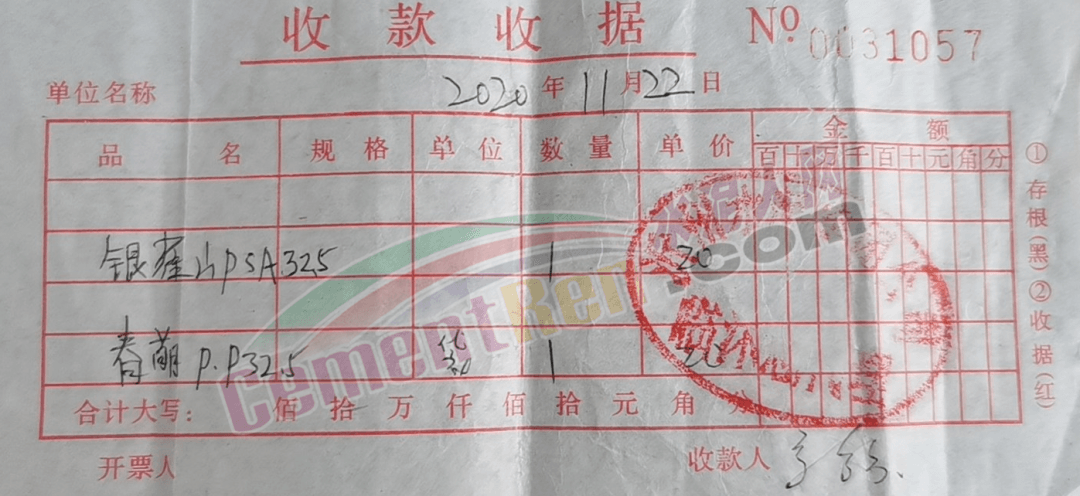 收款收据 Nº 0031057
单位名称 2020年11月22日
品名 规格 单位 数量 单价 金额
百十万千百十元角分
银雀山PSA325 1 20
春萌P.P32.5 袋 1 20
合计大写: 佰 拾 万 仟 佰 拾 元 角 分
开票人 收款人
①存根(黑)②收据(红)
CementRen.com
水泥人网